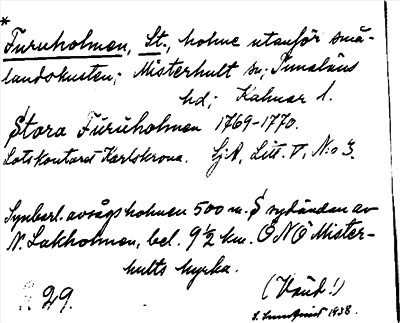 *
Furuholmen, St., holme utanför små-
landskusten; Misterhult sn; Tunaläns
hd; Kalmar l.
Stora Furuholmen 1769-1770.
Lotskontoret Karlskrona. SjA, Litt. V, N:o 3.
Synbarl. avsågs holmen 500 m. S sydändan av
N. Lakholmen, bel. 9½ km. ONO Mister-
hults kyrka.
29. (Vänd!)
1938.